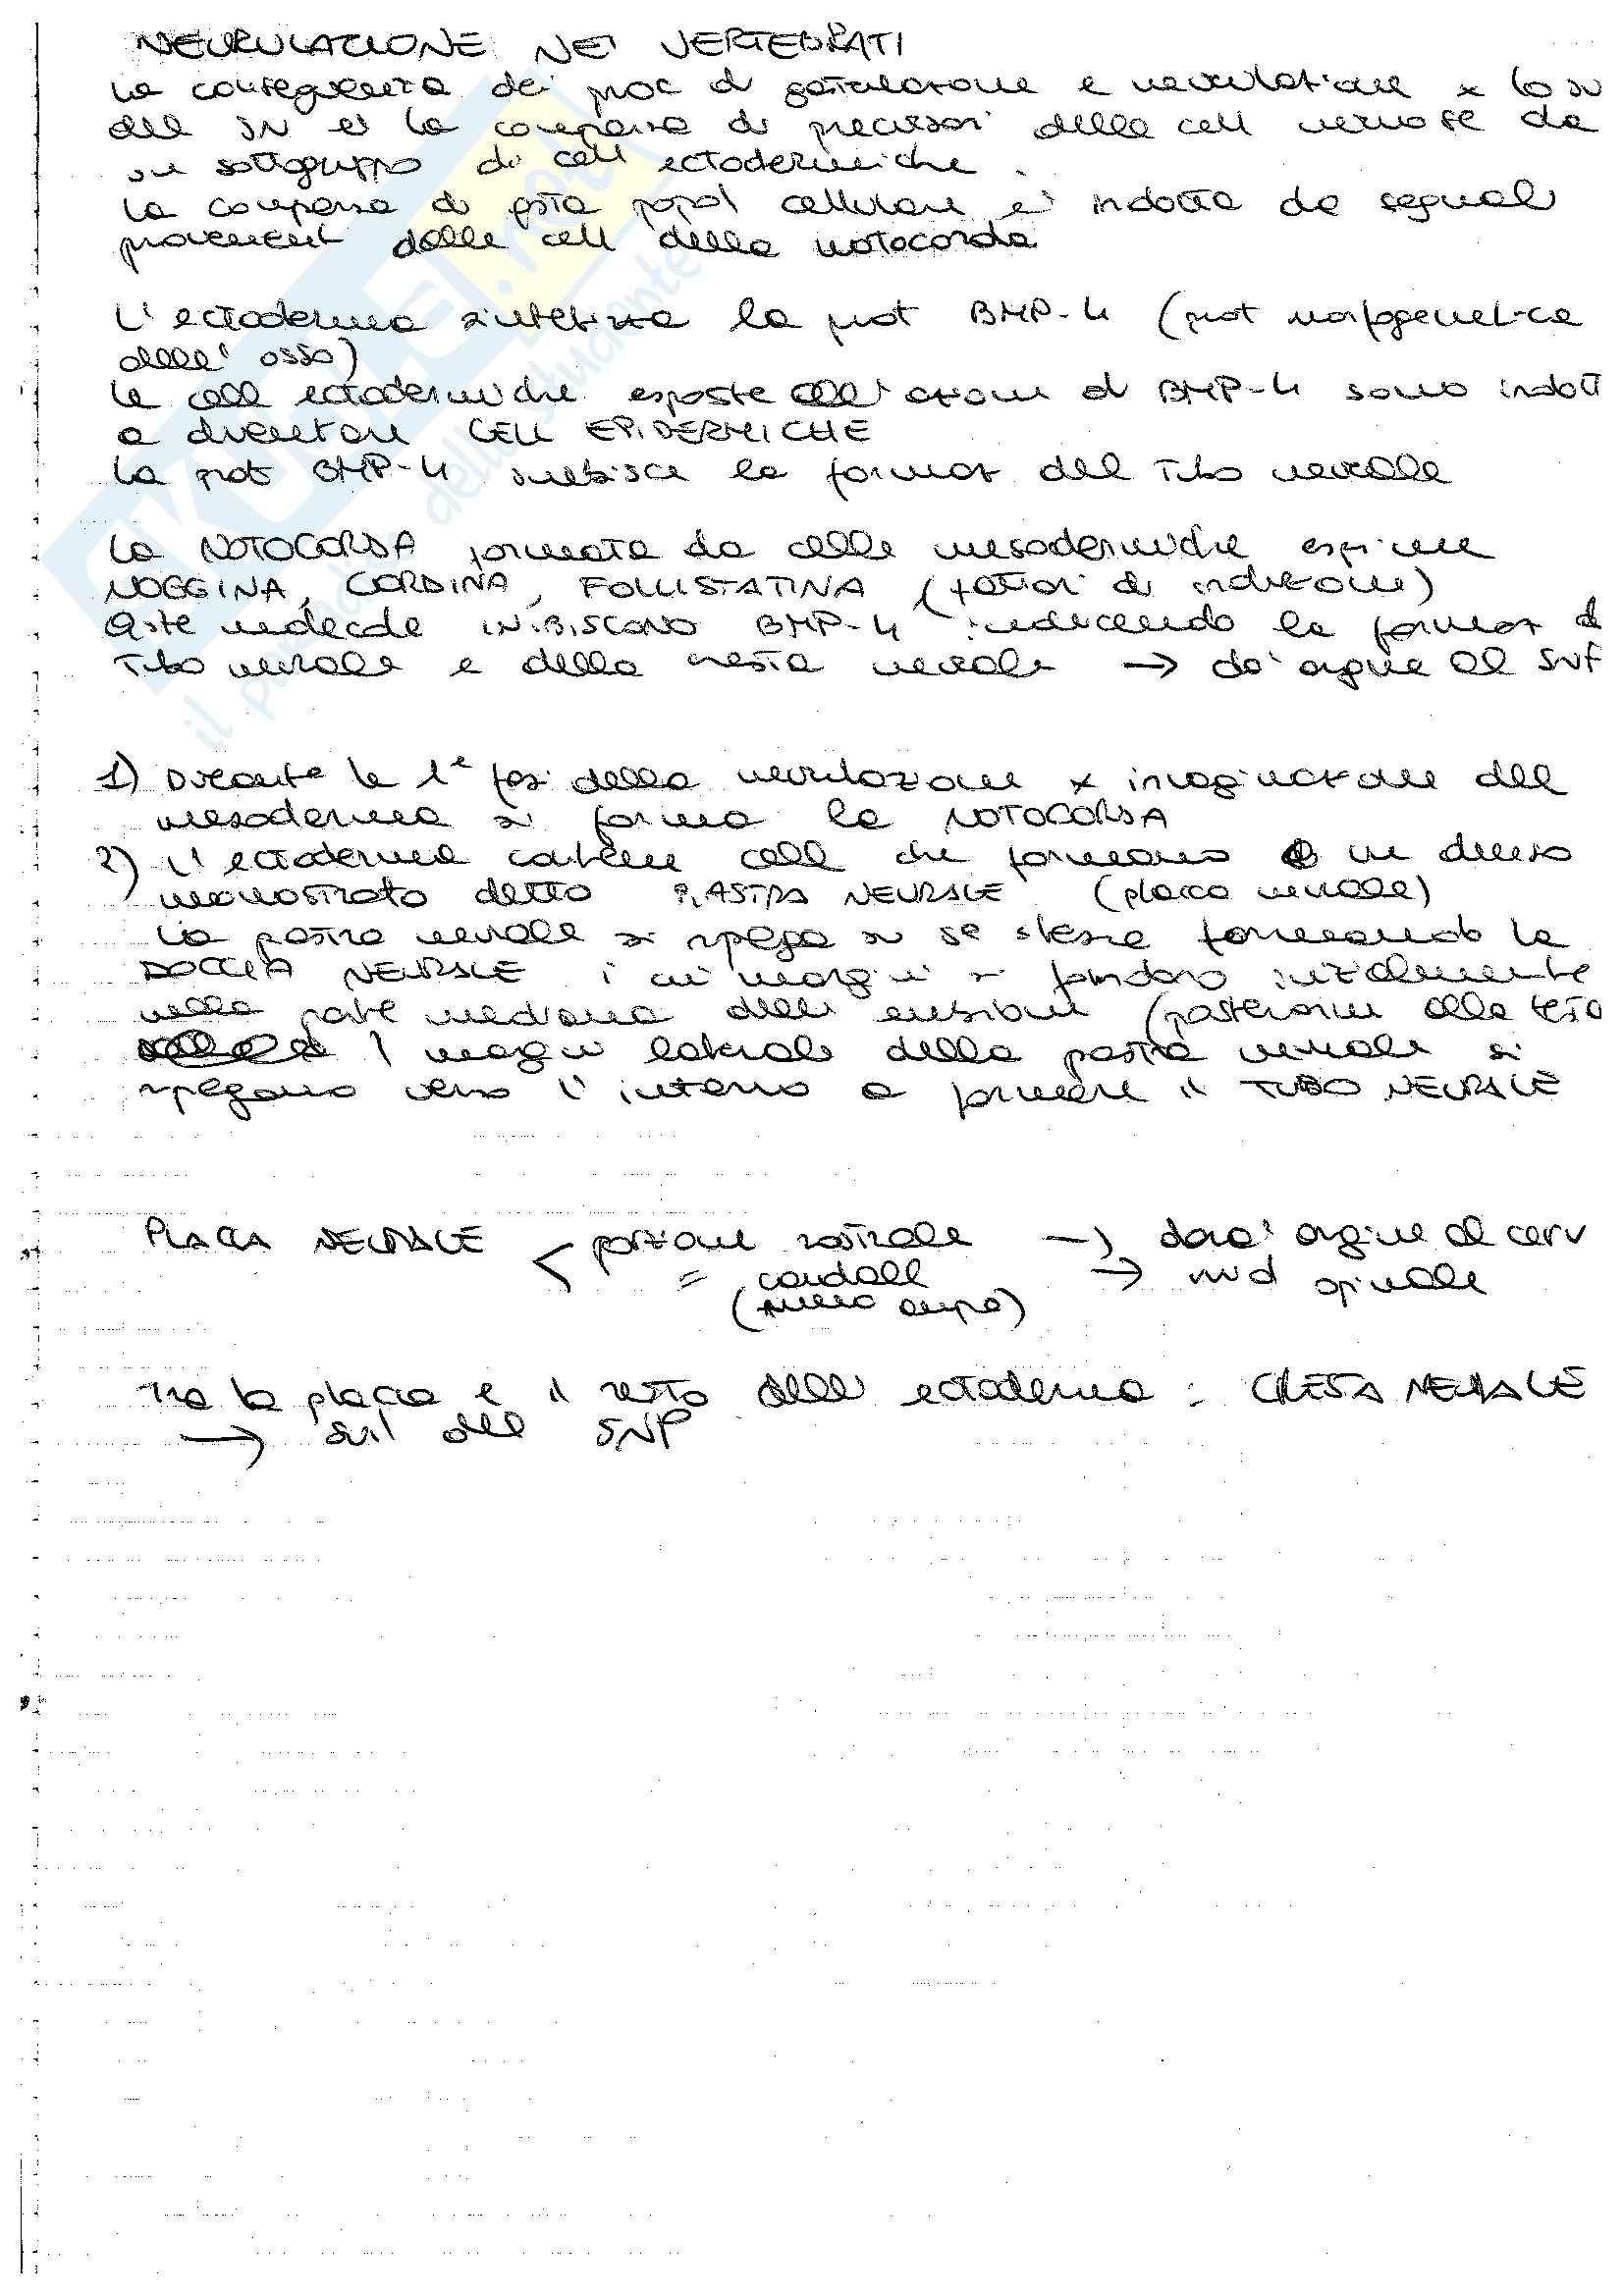 NEURULAZIONE NEI VERTEBRATI
La conseguenza dei proc di gastrulazione e neurulazione x lo sv
del SN è la comparsa di precursori delle cell nervose da
un sottogruppo di cell ectodermiche.
La comparsa di qsta popol cellulare è indotta da segnali
provenienti dalle cell della notocorda
L'ectoderma sintetizza la prot BMP-4 (prot morfogenetica
dell'osso)
Le cell ectodermiche esposte all'azione di BMP-4 sono indott
a diventare CELL EPIDERMICHE
La prot BMP-4 inibisce la formaz del Tubo neurale
La NOTOCORDA formata da cellule mesodermiche esprime
NOGGINA, CORDINA, FOLLISTATINA (fattori di induzione)
Qste molecole INIBISCONO BMP-4 inducendo la formaz d
Tubo neurale e della cresta neurale → da' origine al SNP
1) Durante le 1e fasi della neurulazione x invaginazione del
mesoderma si forma la NOTOCORDA
2) L'ectoderma contiene cell che formano un denso
monostrato detto PIASTRA NEURALE (placca neurale)
La piastra neurale si ripiega su se stessa formando la
DOCCIA NEURALE i cui margini si fondono inizialmente
nella parte mediana dell' embrione (posteriore alla testa
I margini laterali della piastra neurale si
ripiegano verso l'interno a formare il TUBO NEURALE
PLACCA NEURALE < porzione rostrale → dara' origine al cerv
= caudale → mid spinale
Tra la placca e il resto dell' ectoderma : CRESTA NEURALE
→ svil del SNP